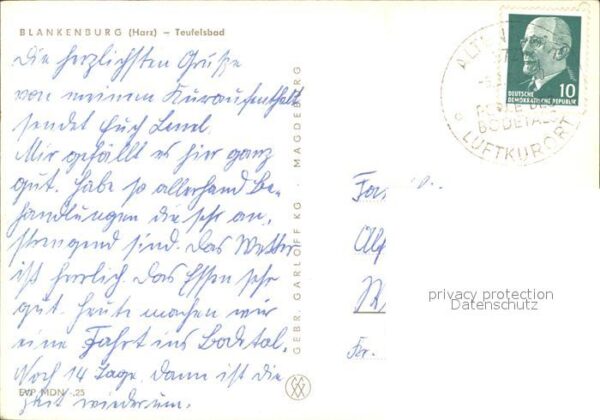 BLANKENBURG (Harz) — Teufelsbad
Die herzlichsten Grüße
von meinem Kuraufenthalt
sendet Euch
Mir gefällt es hier ganz
gut. Habe so allerhand Be-
handlungen die sehr an-
strengend sind. Das Wetter
ist herrlich. Das Essen sehr
gut. Heute machen wir
eine Fahrt ins Bodetal.
Noch 14 Tage. Dann ist die
Zeit wiederum.
EVP MDN -.25
GEBR. GARLOFF KG · MAGDEBURG
BODETALS
LUFTKURORT
10
DEUTSCHE
DEMOKRATISCHE REPUBLIK
Fa
privacy protection
Datenschutz